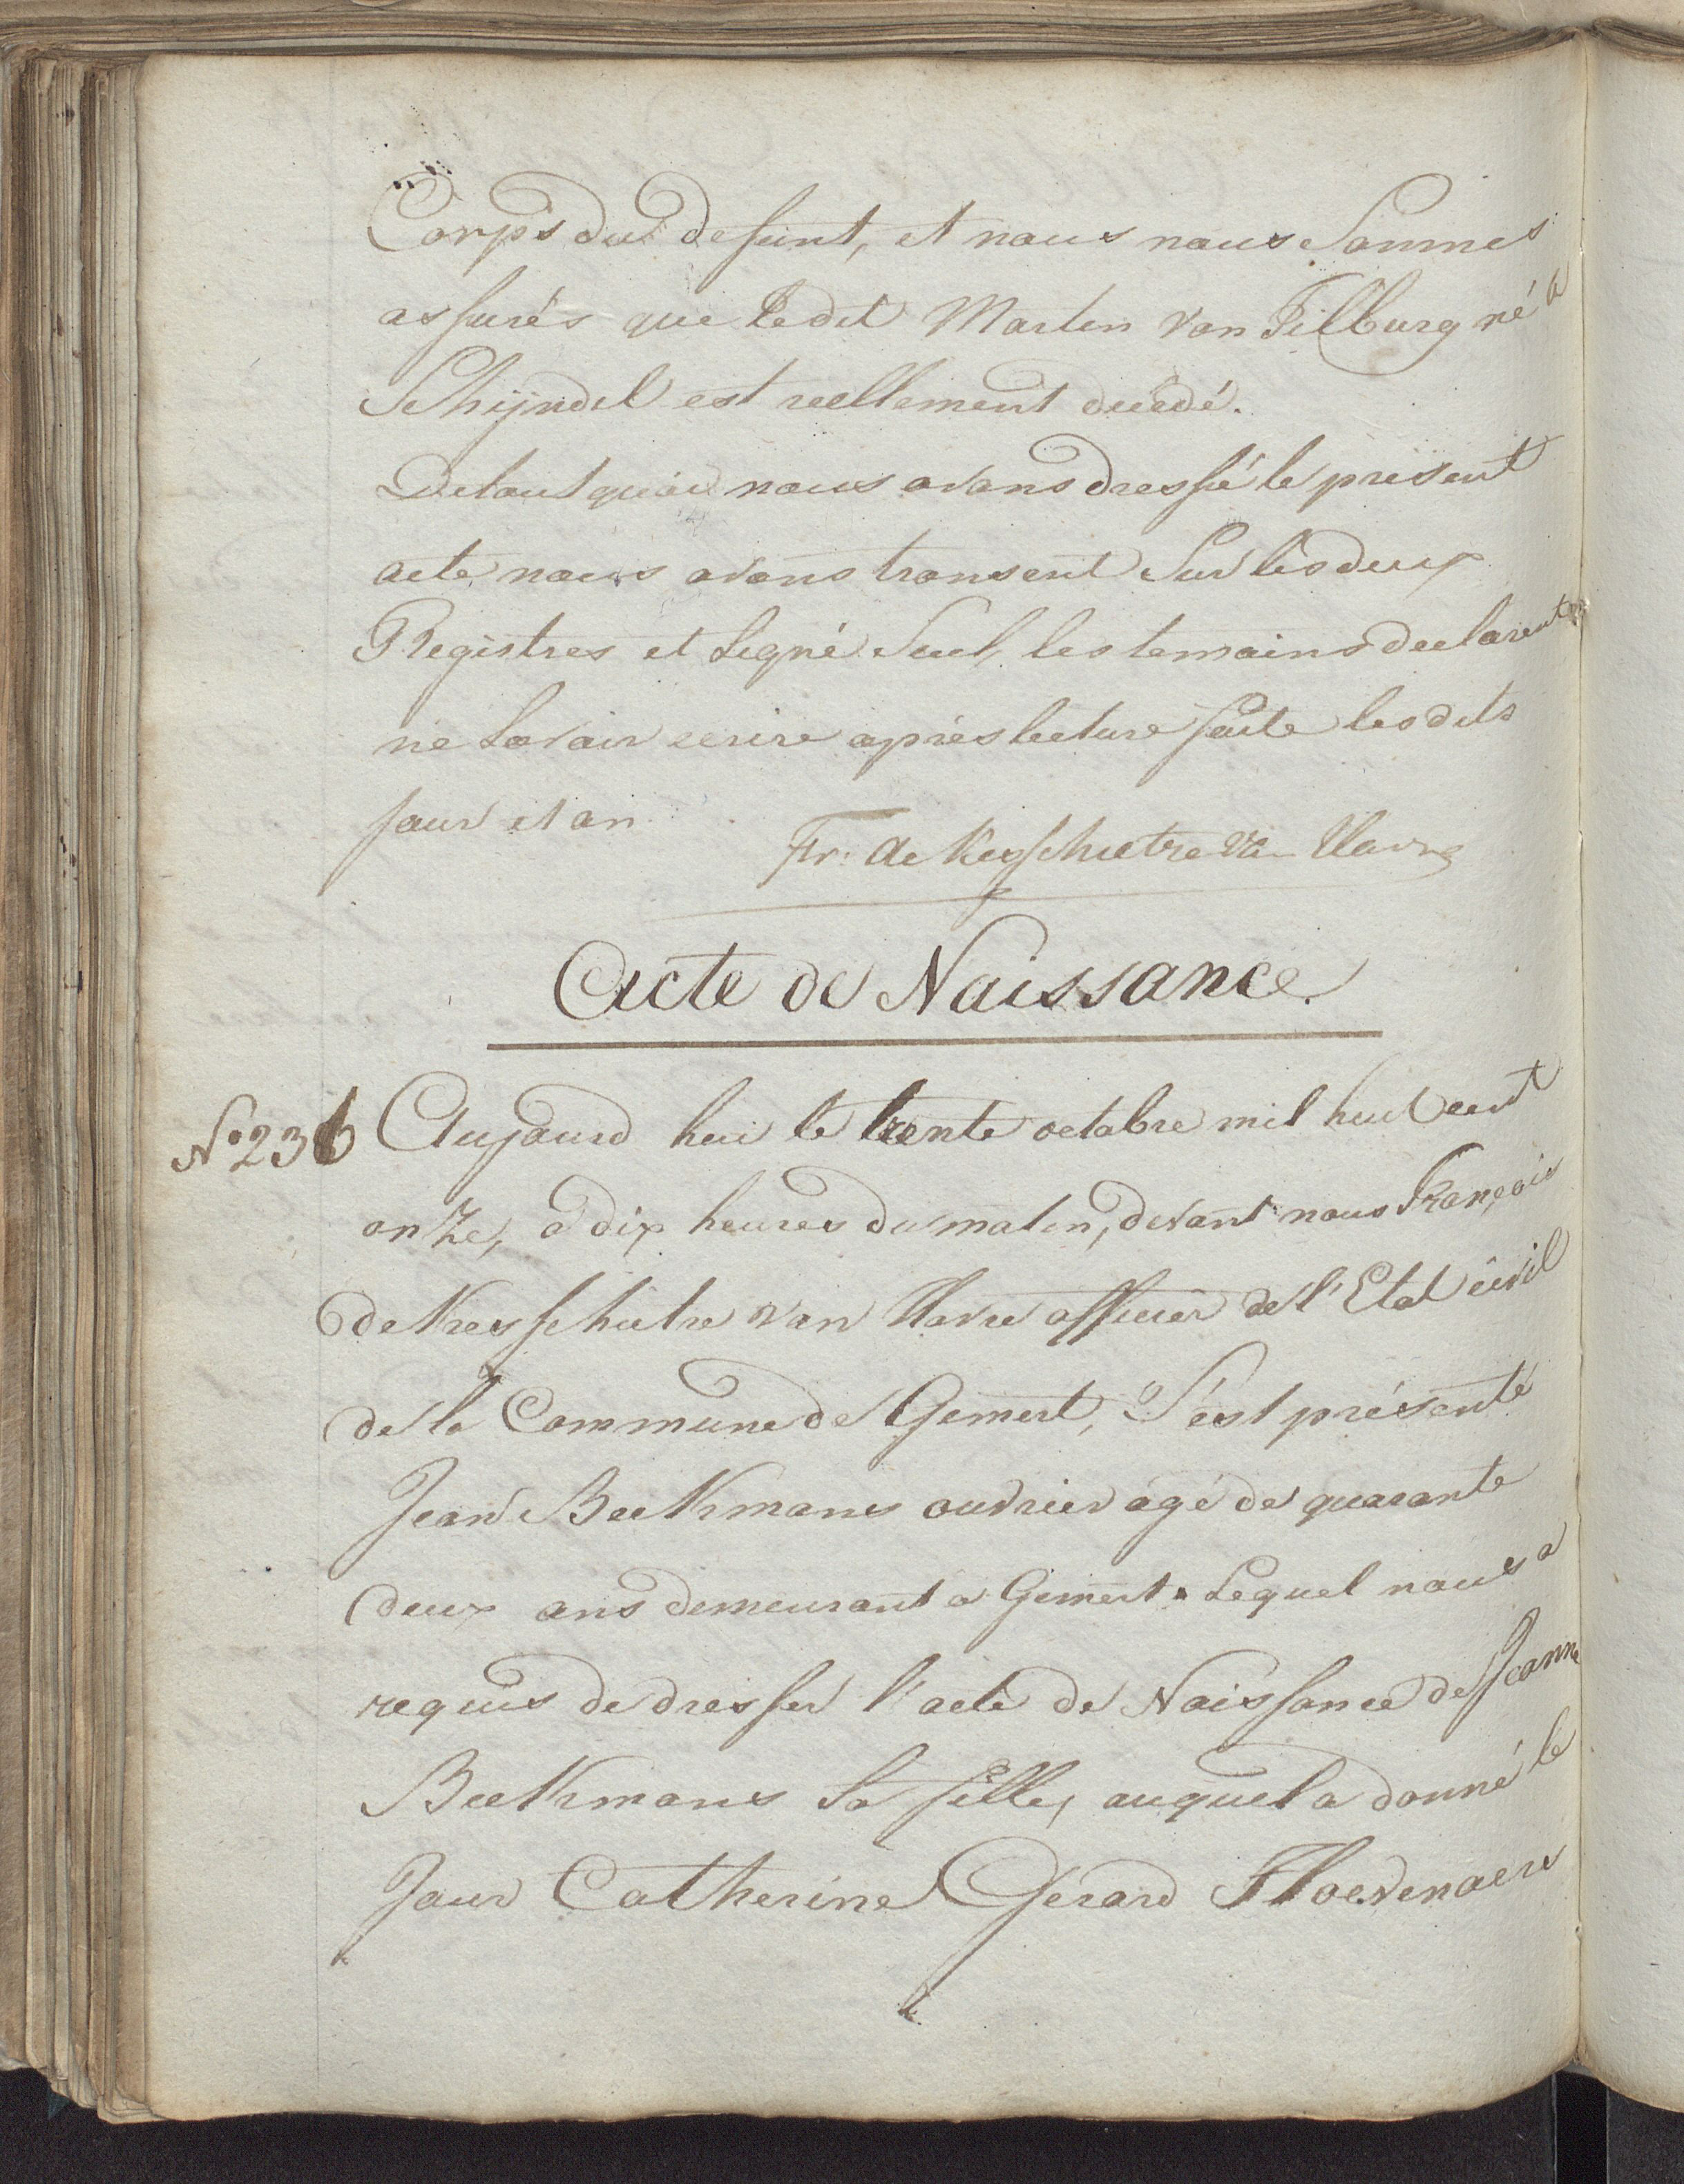 Corps du defunt, et nous nous sommes
assurés que ledit Martin van Tilburg né a
Schijndel est reellement decedé.
De tout quoi nous avons dressé le present
acte nous avons transcrit sur les deux
Registres et signé seul, les temoins declarent
ne savoir ecrire aprés lecture faite lesdits
jour et an.
Fr: de Kesschietre van Havre
Acte de Naissance.
No 236 Aujourd hui le trente octobre mil huit cent
onze, a dix heures du matin, devant nous François
de Kesschietre van Havre officier de l'Etat civil
de la Commune de Gemert, S'est présenté
Jean Beekmans ouvrier agé de quarante
deux ans demeurant a Gemert. Lequel nous a
requis de dresser l'acte de Naissance de Jeanne
Beekmans sa fille, auquel a donné le
Jour Catherine Gerard Hoevenaers